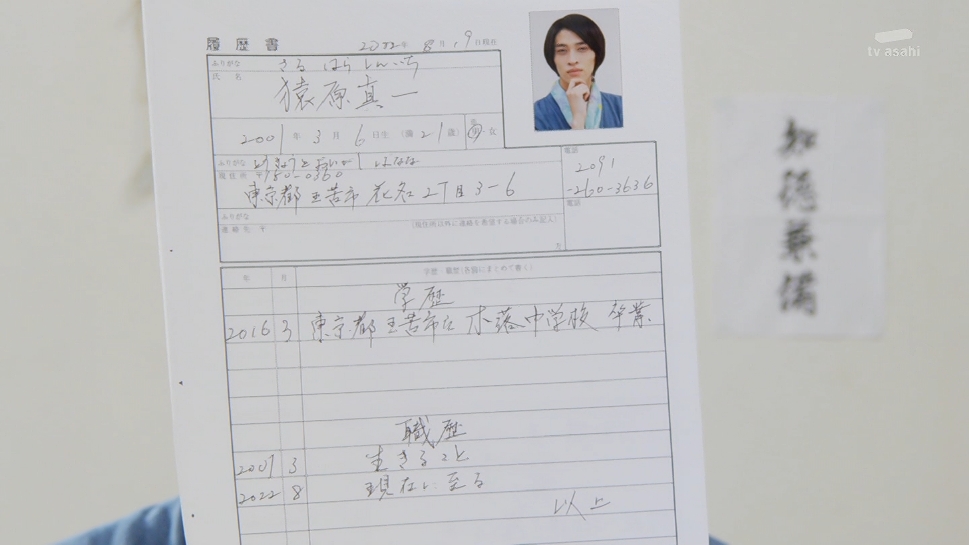 履歴書 2022年 8月 19日現在
tv asahi
ふりがな さる はら しんいち
氏 名 猿原真一
2001年 3月 6日生 (満 21歳) 男・女
ふりがな
現住所 〒180-0360
東京都王苦市花名2丁目3-6
電話
2091
-260-3636
ふりがな
連絡先 〒 (現住所以外に連絡を希望する場合のみ記入)
方
電話
年 月 学歴・職歴(各別にまとめて書く)
学歴
2016 3 東京都王苦市立 木落中学校 卒業
職歴
2001 3 生きること
2022 8 現在に至る
以上
知徳兼備